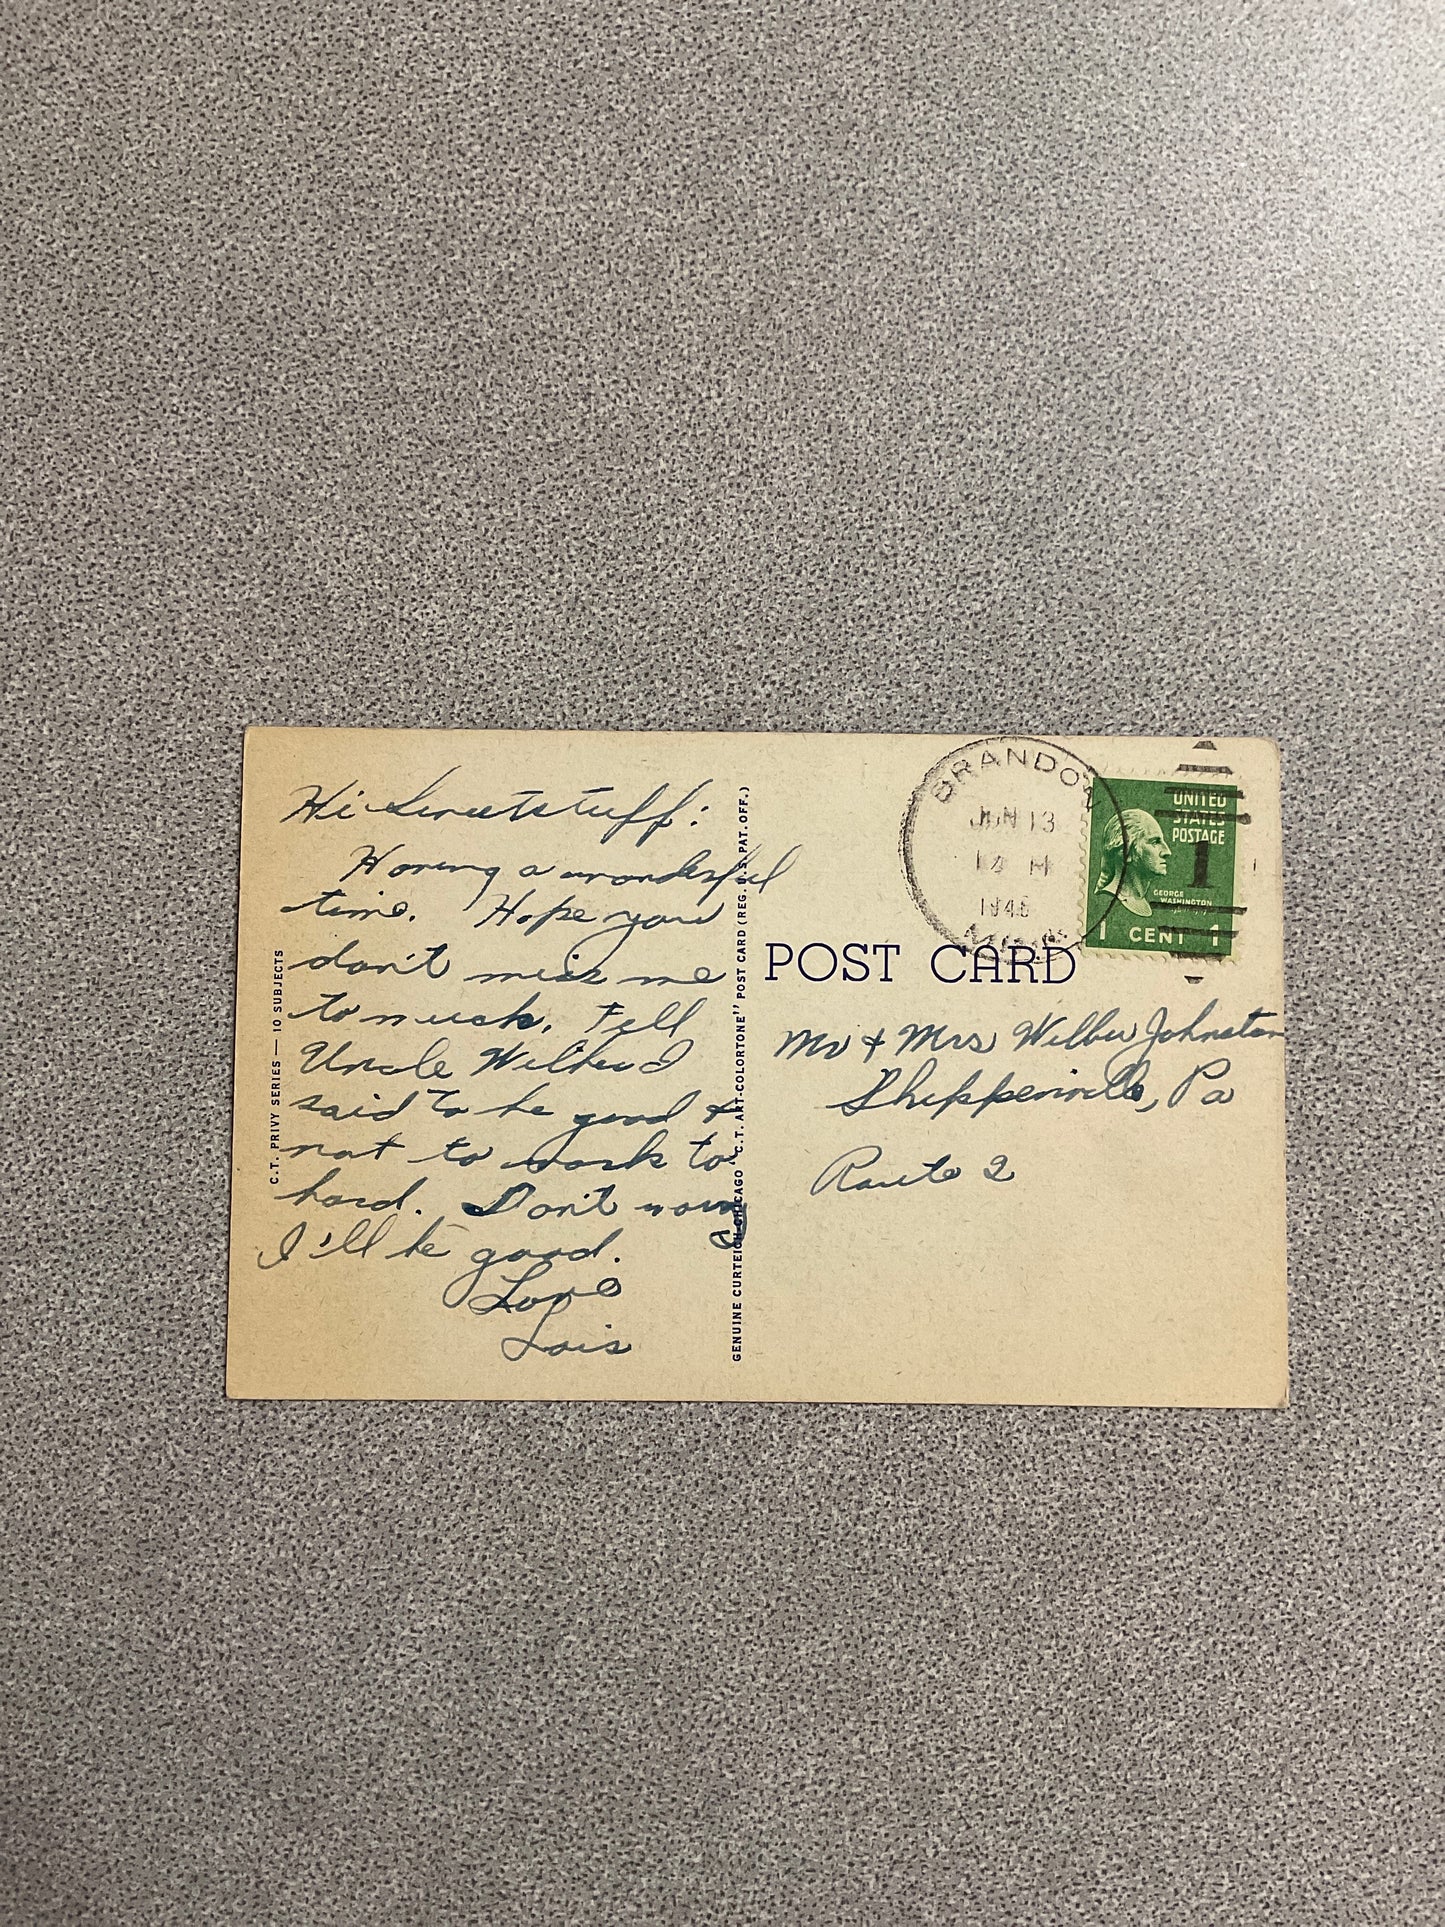 Hi Sweetstuff:
Having a wonderful
time. Hope you
don't miss me
to much. Tell
Uncle Wilbur I
said to be good &
not to work to
hard. Don't worry
I'll be good.
Love
Lois
C.T. PRIVY SERIES — 10 SUBJECTS
GENUINE CURTEICH-CHICAGO "C.T. ART-COLORTONE" POST CARD (REG. U.S. PAT. OFF.)
BRANDON
JUN 13
1946
UNITED
STATES
POSTAGE
1
GEORGE
WASHINGTON
1 CENT 1
POST CARD
Mr & Mrs Wilbur Johnston
Shippenville, Pa
Route 2